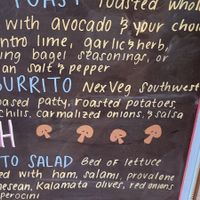 TOAST Toasted Whol
with avocado & your choi
ntro lime, garlic & herb,
ing bagel seasonings, or
an salt & pepper
BURRITO Nex Veg Southwest
based patty, roasted potatoes,
chilis, carmalized onions, & salsa
H
TO SALAD Bed of lettuce
ed with ham, salami, provalone
mesean, Kalamata olives, red onions
perocini